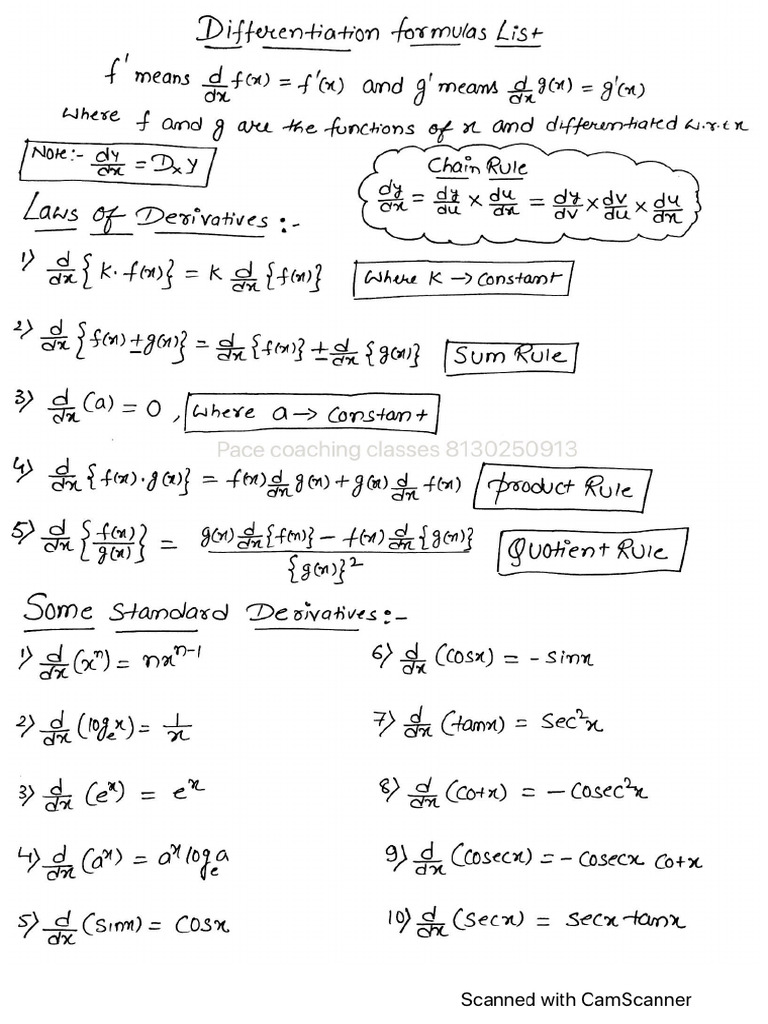 Differentiation formulas List
f' means d/dx f(x) = f'(x) and g' means d/dx g(x) = g'(x)
Where f and g are the functions of x and differentiated w.r.t x
Note:- dy/dx = Dₓy
Chain Rule
dy/dx = dy/du × du/dx = dy/dv × dv/du × du/dx
Laws of Derivatives :-
1) d/dx {K. f(x)} = K d/dx {f(x)} Where K → Constant
2) d/dx {f(x) ± g(x)} = d/dx {f(x)} ± d/dx {g(x)} Sum Rule
3) d/dx (a) = 0 , Where a → Constant
Pace coaching classes 8130250913
4) d/dx {f(x) · g(x)} = f(x) d/dx g(x) + g(x) d/dx f(x) Product Rule
5) d/dx {f(x)/g(x)} = (g(x) d/dx {f(x)} - f(x) d/dx {g(x)}) / {g(x)}² Quotient Rule
Some Standard Derivatives :-
1) d/dx (xⁿ) = nxⁿ⁻¹
2) d/dx (logₑx) = 1/x
3) d/dx (eˣ) = eˣ
4) d/dx (aˣ) = aˣ logₑa
5) d/dx (sinx) = cosx
6) d/dx (cosx) = - sinx
7) d/dx (tanx) = sec²x
8) d/dx (cotx) = - cosec²x
9) d/dx (cosecx) = - cosecx cotx
10) d/dx (secx) = secx tanx
Scanned with CamScanner